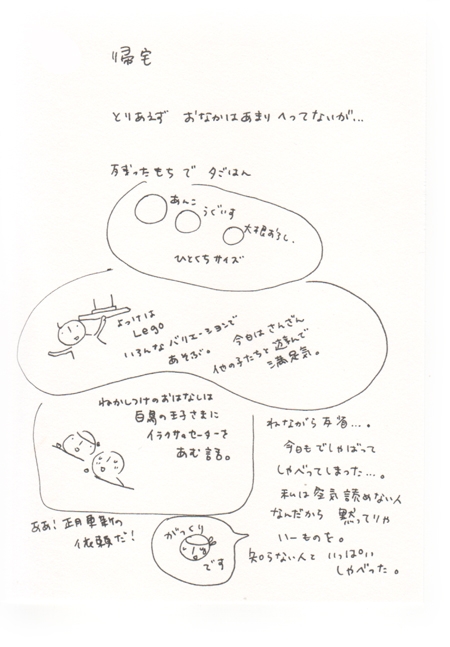 帰宅
とりあえず おなかはあまり へってないが…
あずったもち で 夕ごはん
あんこ
うぐいす
大根おろし、
ひとくちサイズ
よっけは
Lego
いろんな バリエーションで
あそぶ。
今日は さんざん
他の子たちと 遊んで
満足気。
ねかしつけのおはなしは
白鳥の王子さまに
イラクサのセーターを
あむ話。
ねながら 反省…。
今日もでしゃばって
しゃべってしまった…。
私は空気読めない人
なんだから 黙ってりゃ
いーものを。
知らない人と いっぱい
しゃべった。
ああ!
依頼だ!
がっくり
です